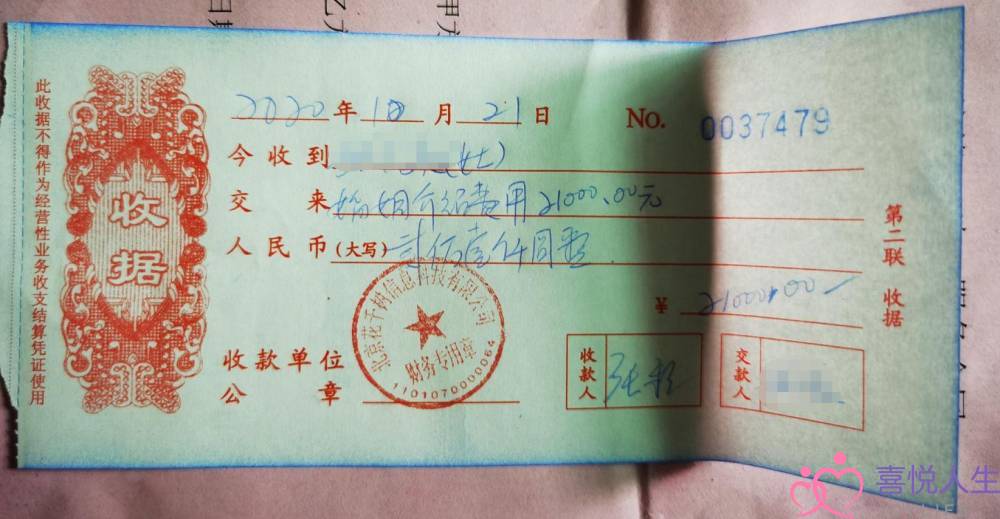 此收据不得作为经营性业务收支结算凭证使用
收据
2020年10月21日 No. 0037479
今收到 (女)
交来 婚姻介绍费用21000.00元
人民币(大写) 贰
¥ 21000.00
第二联 收据
收款单位
公章
北京花千纳信息科技有限公司
财务专用章
1101070000064
收款人 张
交款人
喜悦人生
LIFE